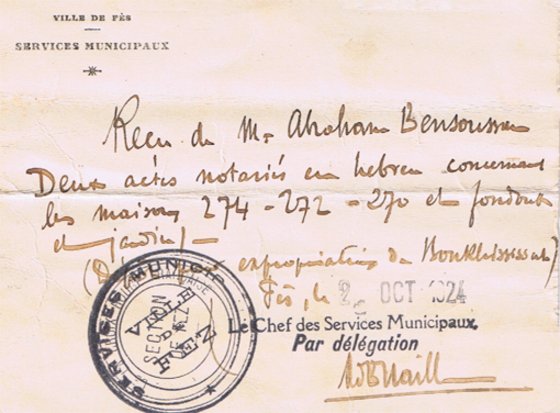 VILLE DE FÈS
SERVICES MUNICIPAUX
Recu de Mr Abraham Bensoussan
Deux actes notariés en hebreu concernant
les maisons 274 - 272 - 270 et fondouk
et jardin
expropriation de Boukhississat)
Fès, le 2 OCT 1924
Le Chef des Services Municipaux,
Par délégation
SERVICES MUNICIP
VILLE
DE
FEZ
SECTION